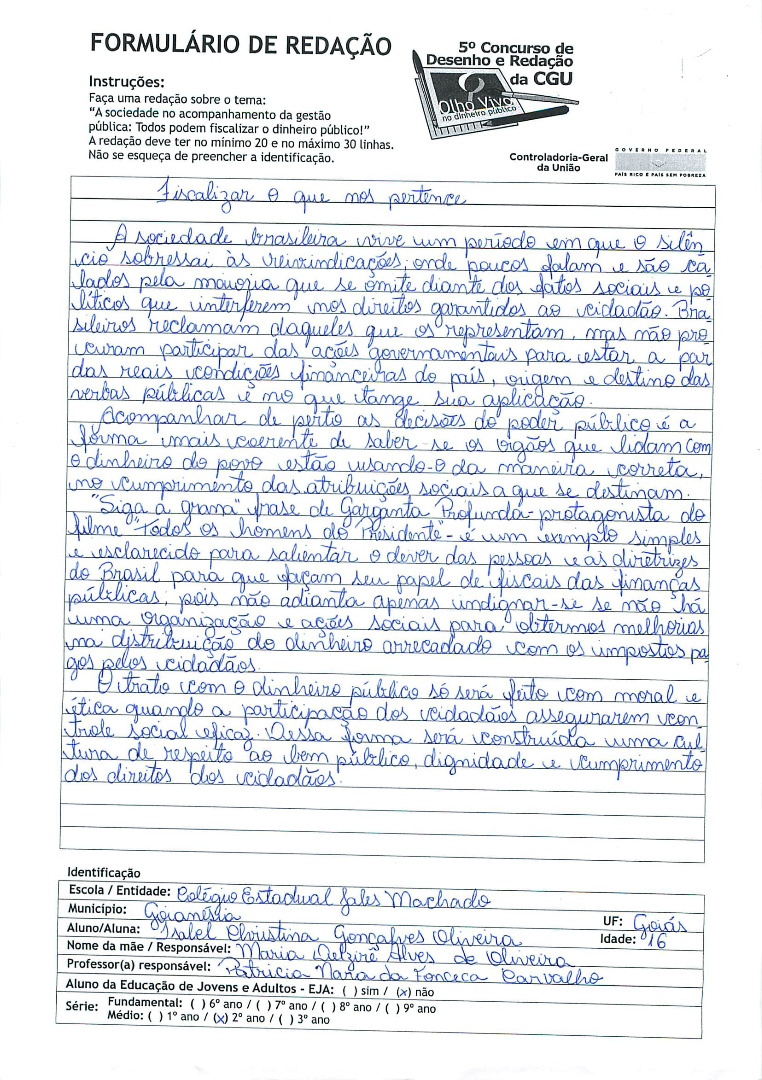 FORMULÁRIO DE REDAÇÃO
5º Concurso de
Desenho e Redação
da CGU
Olho Vivo
no dinheiro público
Instruções:
Faça uma redação sobre o tema:
“A sociedade no acompanhamento da gestão
pública: Todos podem fiscalizar o dinheiro público!”
A redação deve ter no mínimo 20 e no máximo 30 linhas.
Não se esqueça de preencher a identificação.
Controladoria-Geral
da União
GOVERNO FEDERAL
PAÍS RICO É PAÍS SEM POBREZA
Fiscalizar o que nos pertence
A sociedade brasileira vive um período em que o silên
cio sobressai às reivindicações, onde poucos falam e são ca
lados pela maioria que se omite diante dos fatos sociais e po
líticos que interferem nos direitos garantidos ao cidadão. Bra
sileiros reclamam daqueles que os representam, mas não pro
curam participar das ações governamentais para estar a par
das reais condições financeiras do país, origem e destino das
verbas públicas e no que tange sua aplicação.
Acompanhar de perto as decisões do poder público é a
forma mais coerente de saber-se os orgãos que lidam com
o dinheiro do povo estão usando-o da maneira correta,
no cumprimento das atribuições sociais a que se destinam.
"Siga a grana" frase de Garganta Profunda - protagonista do
filme "Todos os homens do Presidente" - é um exemplo simples
e esclarecido para salientar o dever das pessoas e as diretrizes
do Brasil para que façam seu papel de fiscais das finanças
públicas, pois não adianta apenas indignar-se se não há
uma organização e ações sociais para obtermos melhorias
na distribuição do dinheiro arrecadado com os impostos pa
gos pelos cidadãos.
O trato com o dinheiro público só será feito com moral e
ética quando a participação dos cidadãos assegurarem con
trole social eficaz. Dessa forma será construída uma cul
tura de respeito ao bem público, dignidade e cumprimento
dos direitos dos cidadãos.
Identificação
Escola / Entidade: Colégio Estadual Jales Machado
Município: Goianésia UF: Goiás
Aluno/Aluna: Isabel Christina Gonçalves Oliveira Idade: 16
Nome da mãe / Responsável: Maria Delzirê Alves de Oliveira
Professor(a) responsável: Patricia Nara da Fonceca Carvalho
Aluno da Educação de Jovens e Adultos - EJA: ( ) sim / (x) não
Série: Fundamental: ( ) 6º ano / ( ) 7º ano / ( ) 8º ano / ( ) 9º ano
Médio: ( ) 1º ano / (x) 2º ano / ( ) 3º ano